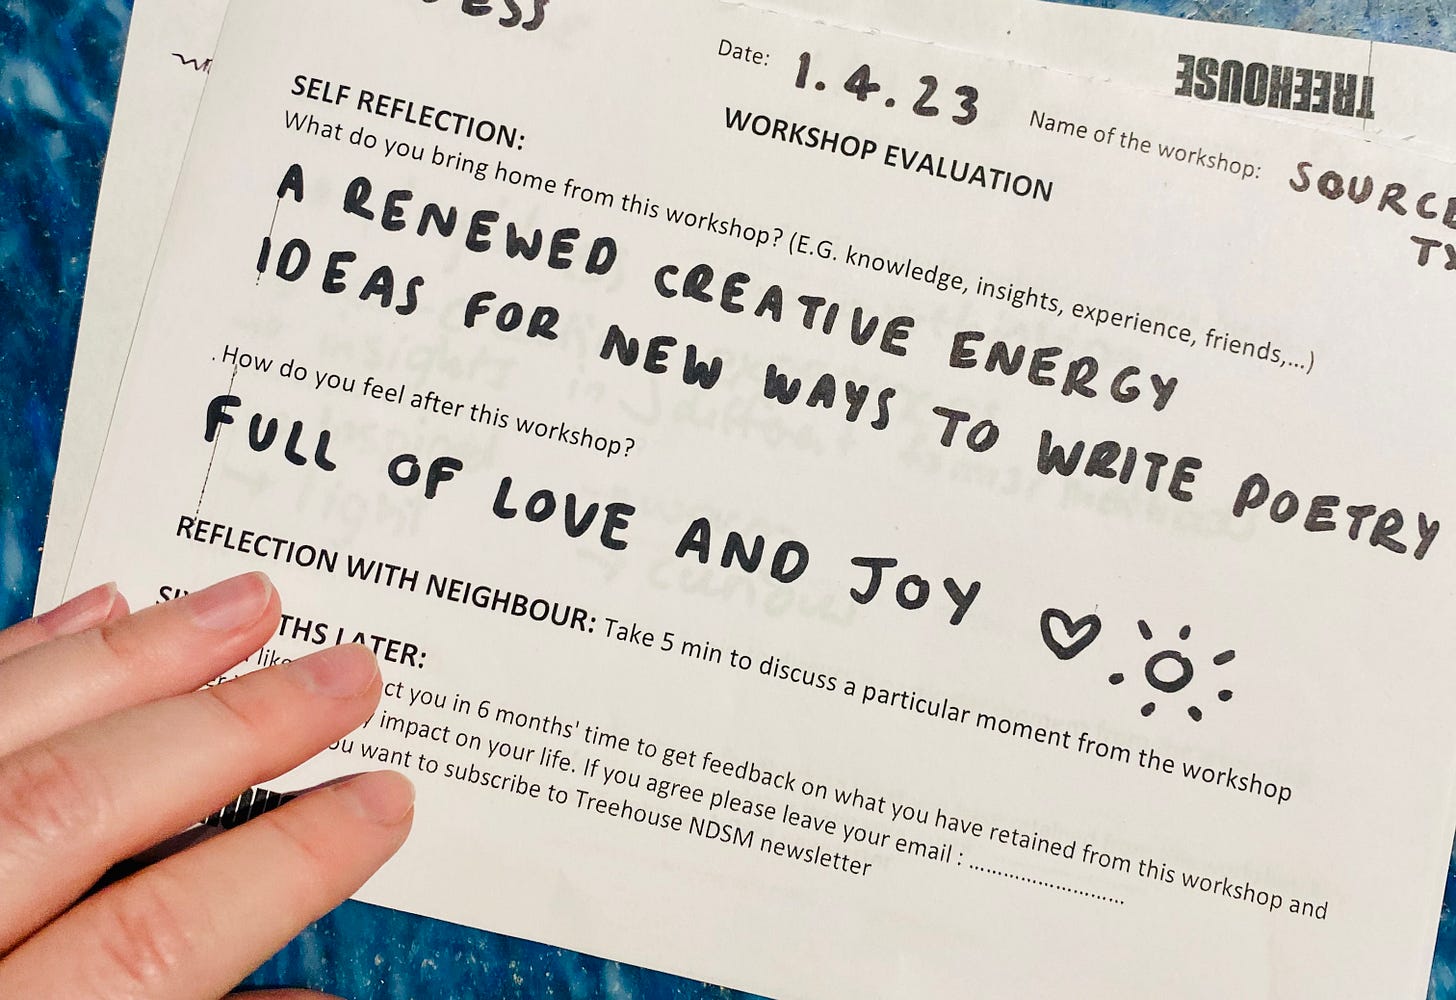 ESS
Date: 1.4.23
TREEHOUSE
WORKSHOP EVALUATION
Name of the workshop: SOURCE
SELF REFLECTION:
What do you bring home from this workshop? (E.G. knowledge, insights, experience, friends,...)
A RENEWED CREATIVE ENERGY
IDEAS FOR NEW WAYS TO WRITE POETRY
. How do you feel after this workshop?
FULL OF LOVE AND JOY
REFLECTION WITH NEIGHBOUR: Take 5 min to discuss a particular moment from the workshop
THS LATER:
like ct you in 6 months' time to get feedback on what you have retained from this workshop and
impact on your life. If you agree please leave your email : ...........................
want to subscribe to Treehouse NDSM newsletter